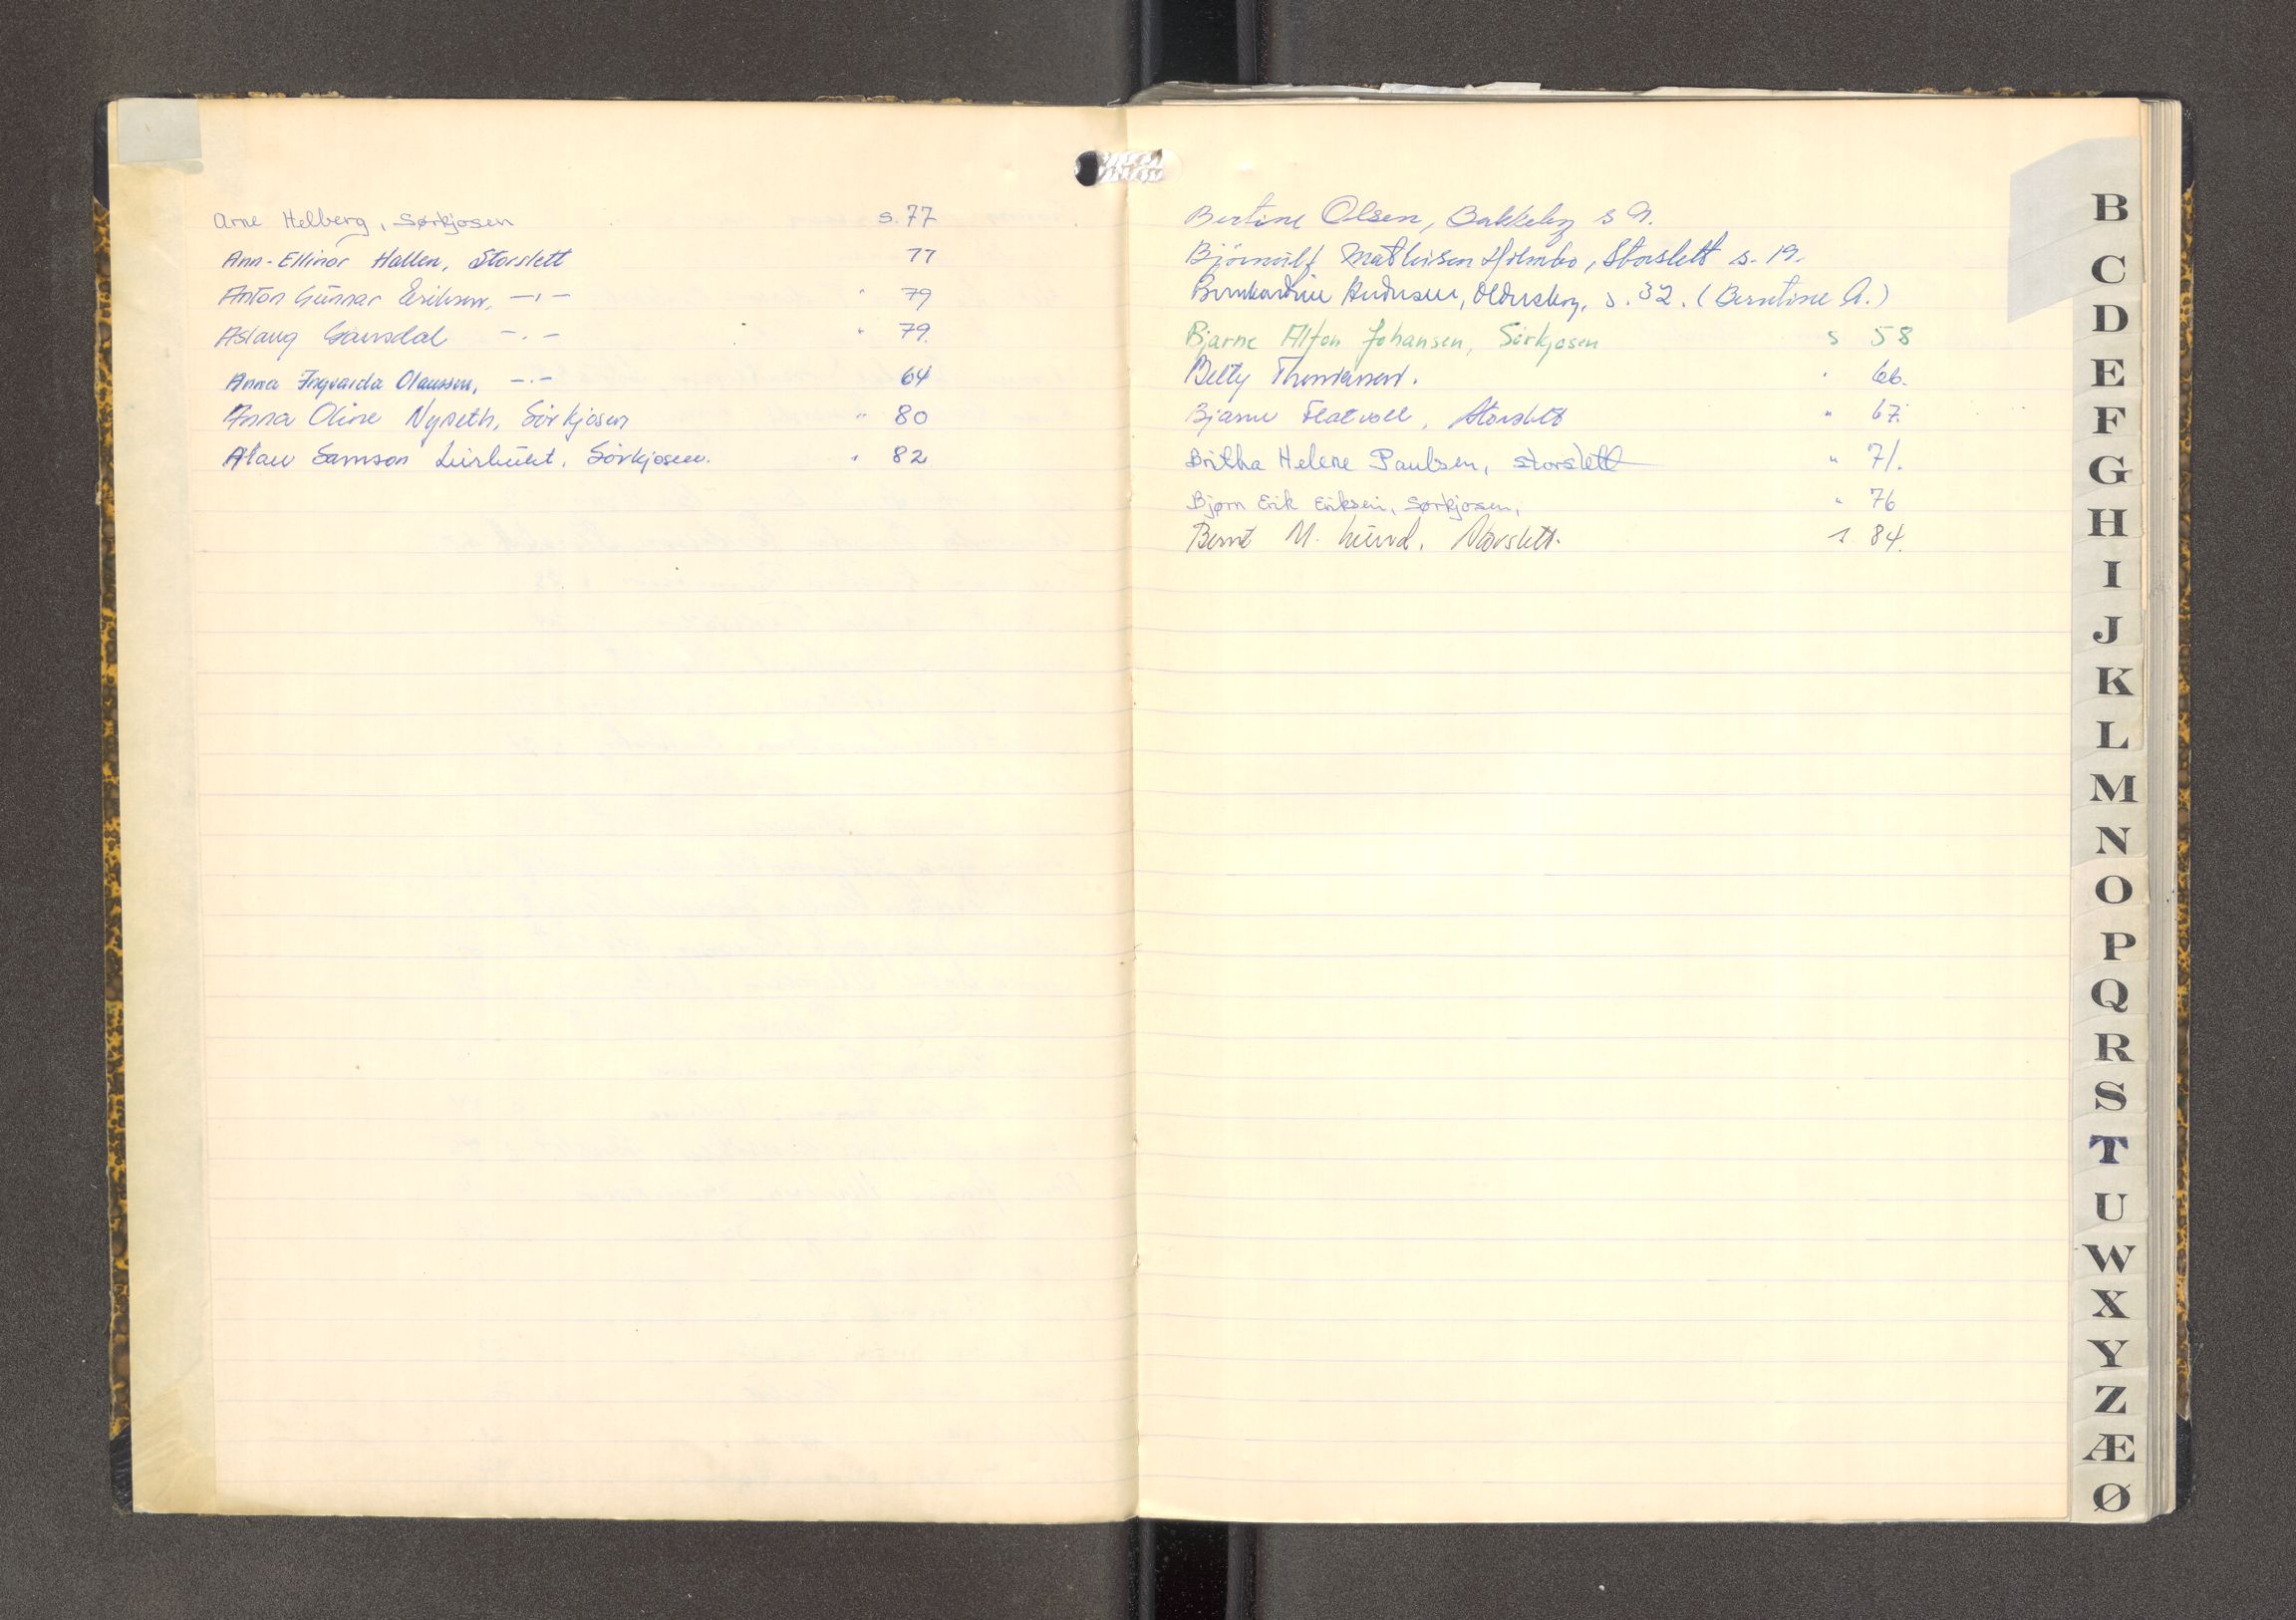 Arne Helberg, Sørkjosen s. 77
Ann-Ellinor Hallen, Storslett 77
Anton Gunnar Eriksen, —.— " 79
Aslaug —.— " 79.
Anna Ingvarda Olaussen, —.— 64
Anna Oline Nyseth, Sörkjosen " 80
Alau Samson Leirbukt, Sörkjosen. " 82
Bertine Olsen, Bakkeby s 9.
Björnulf Mathisen Holmbo, Storslett s. 19.
Bernhardine Andersen, Olderskog, s. 32. (Berntine A.)
Bjarne Alfon Johansen, Sörkjosen s 58
Betty Thomassen. " 66.
Bjarne Flatvoll, Storslett " 67.
Britha Helene Paulsen, Storslett " 71.
Bjørn Erik Eriksen, Sørkjosen, " 76
Bernt M. Lund. Storslett. s. 84.
B
C
D
E
F
G
H
I
J
K
L
M
N
O
P
Q
R
S
T
U
W
X
Y
Z
Æ
Ø